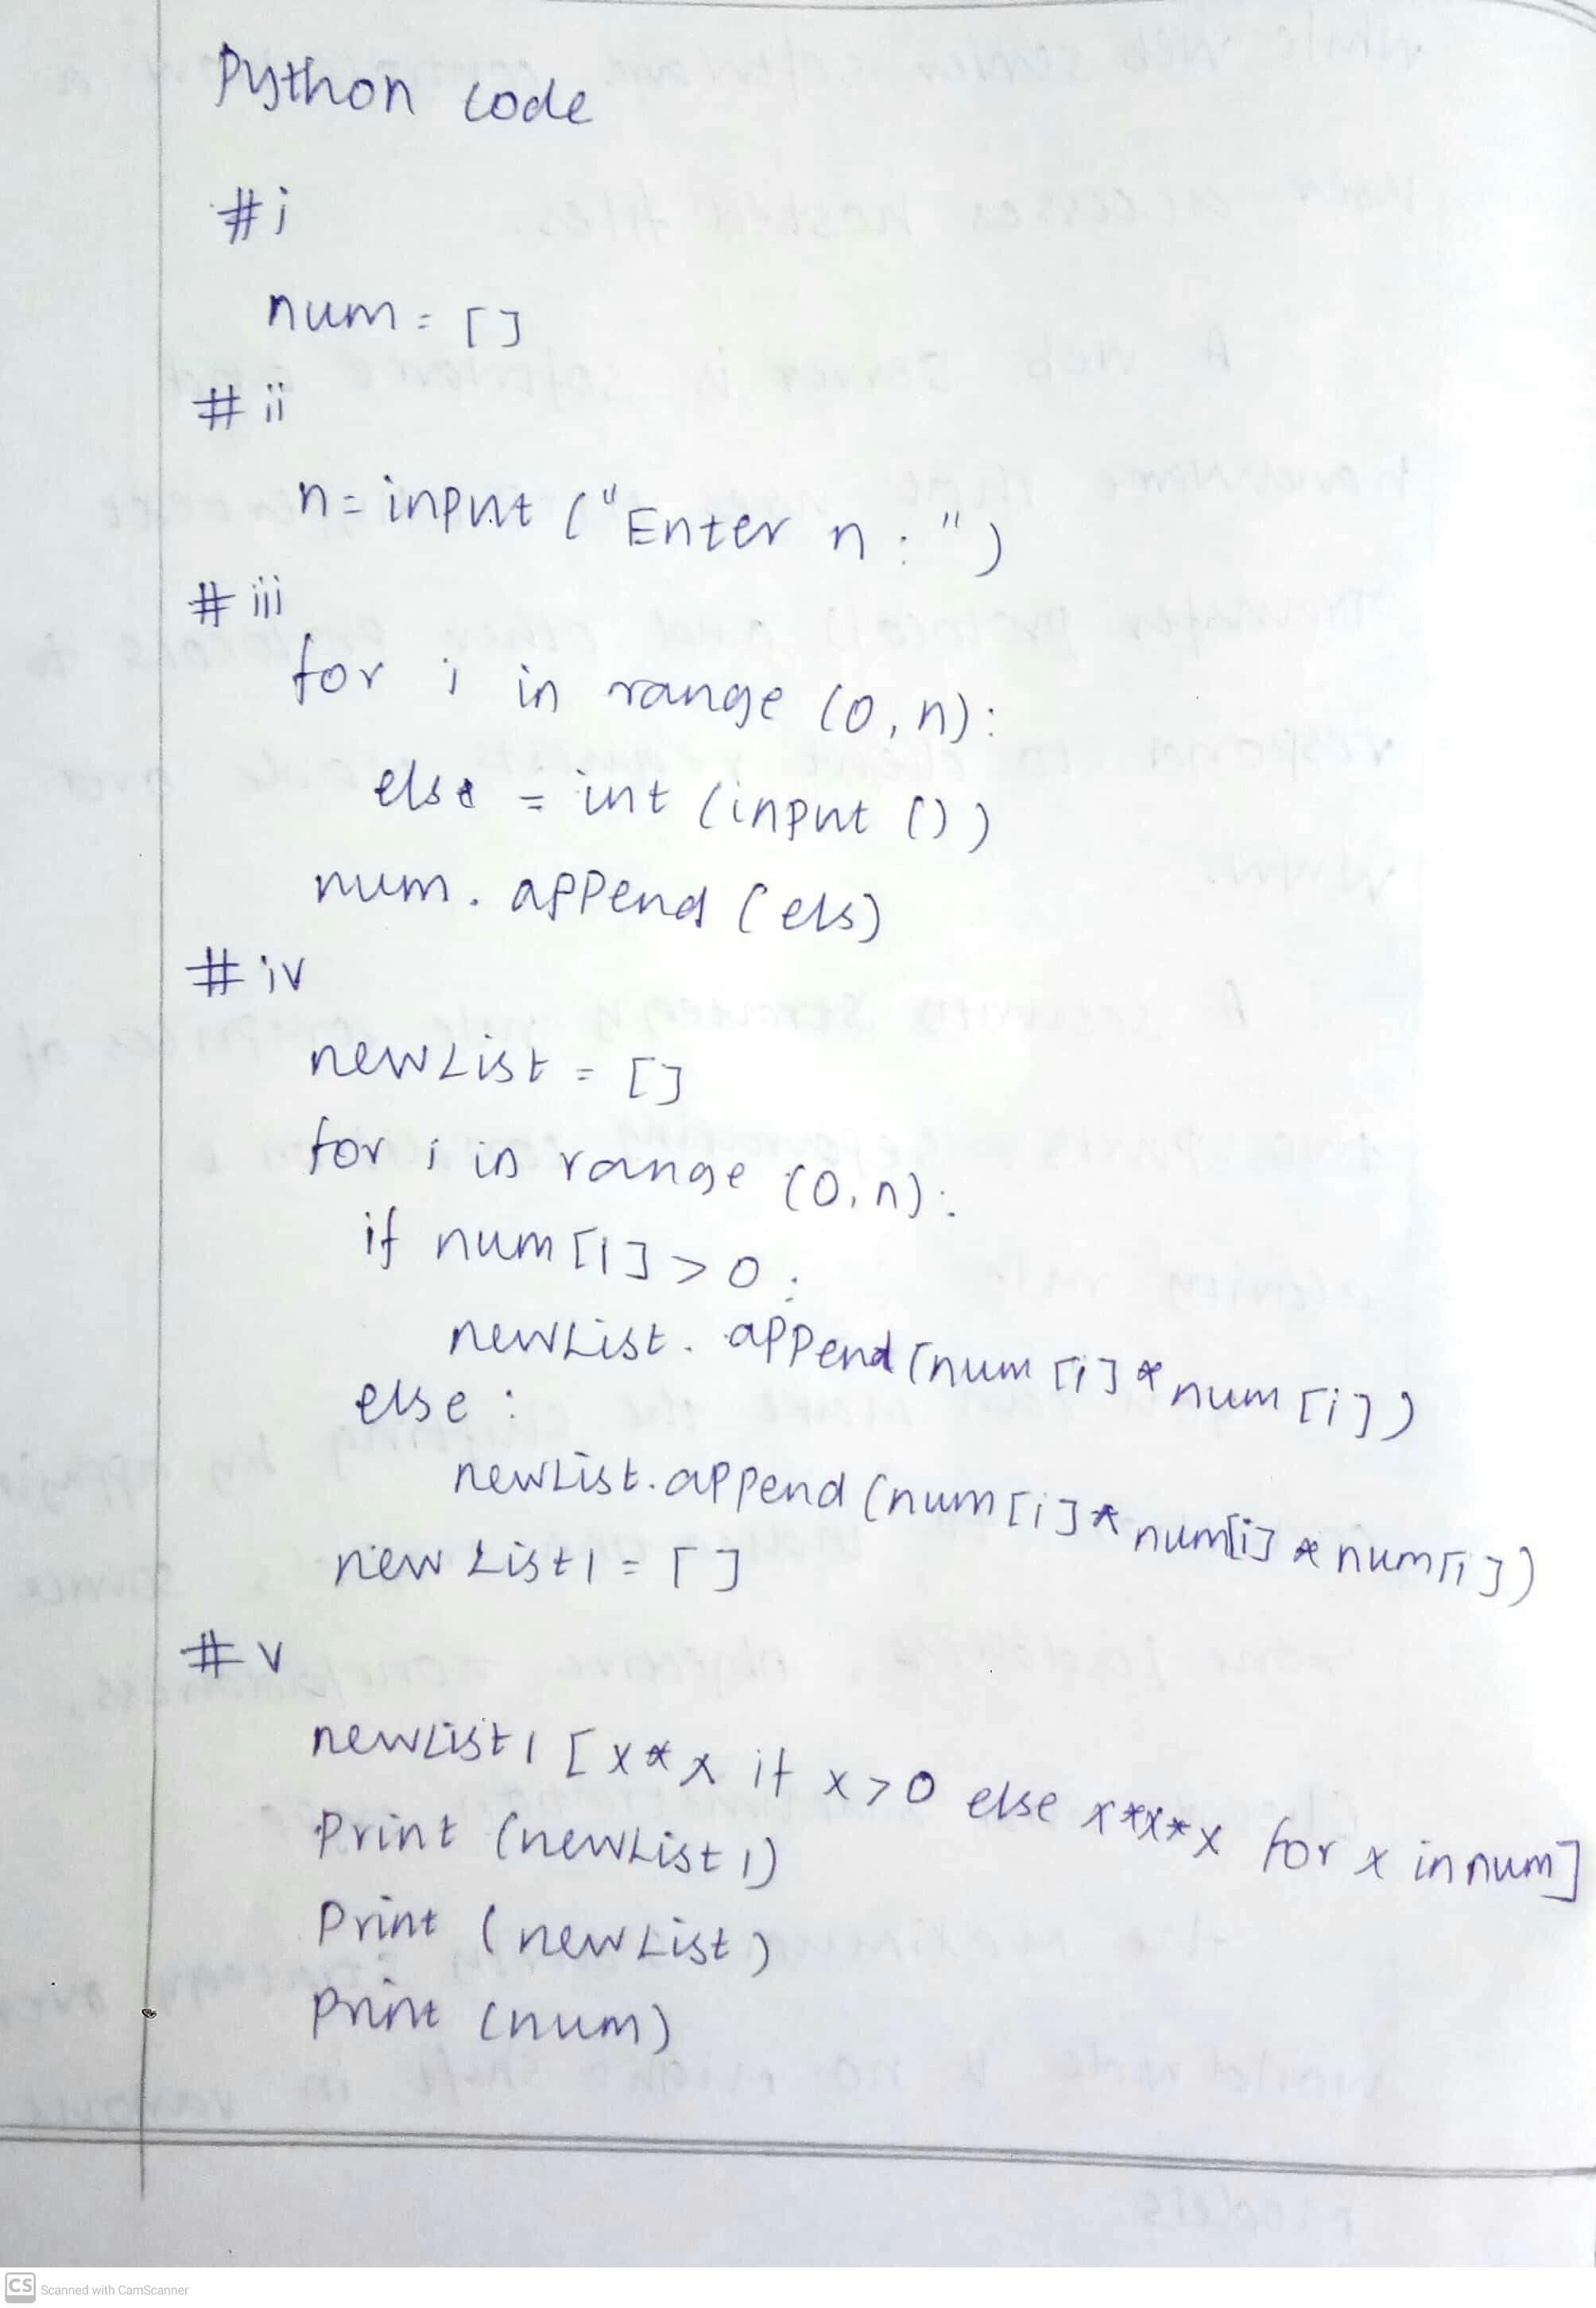 Python code
#i
num = []
#ii
n = input ("Enter n : ")
#iii
for i in range (0, n):
else = int (input ())
num. append (els)
#iv
newList = []
for i in range (0, n):
if num [i] > 0 :
newList. append (num [i] * num [i])
else :
newList. append (num [i] * num[i] * num [i])
new List1 = []
#v
newList1 [x*x if x>0 else x*x*x for x in num]
Print (newList1)
Print (newList)
Print (num)
CS Scanned with CamScanner